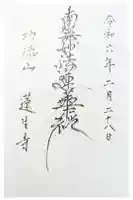 令和六年二月二十八日
南無妙法蓮華経
功徳山
蓮生寺